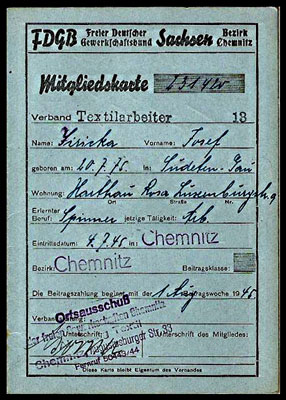 FDGB Freier Deutscher Gewerkschaftsbund Sachsen Bezirk Chemnitz
Mitgliedskarte 231420
Verband Textilarbeiter 13
Name: Jiricka Vorname: Josef
geboren am: 20.7.75 in:
Wohnung: Harthau Rosa Luxenburgstr 9
Ort Straße Nr.
Erlernter
Beruf: Spinner jetzige Tätigkeit:
Eintrittsdatum: 4.7.45 in Chemnitz
Bezirk: Chemnitz Beitragsklasse:
Die Beitragszahlung beginnt mit der 1 Aug woche 1945
Verband
Ortsausschuß
der freien Gew. Chemnitz
Unterschrift: Unterschrift des Mitgliedes:
Chemnitz Str. 33
Fernruf
Diese Karte bleibt Eigentum des Verbandes